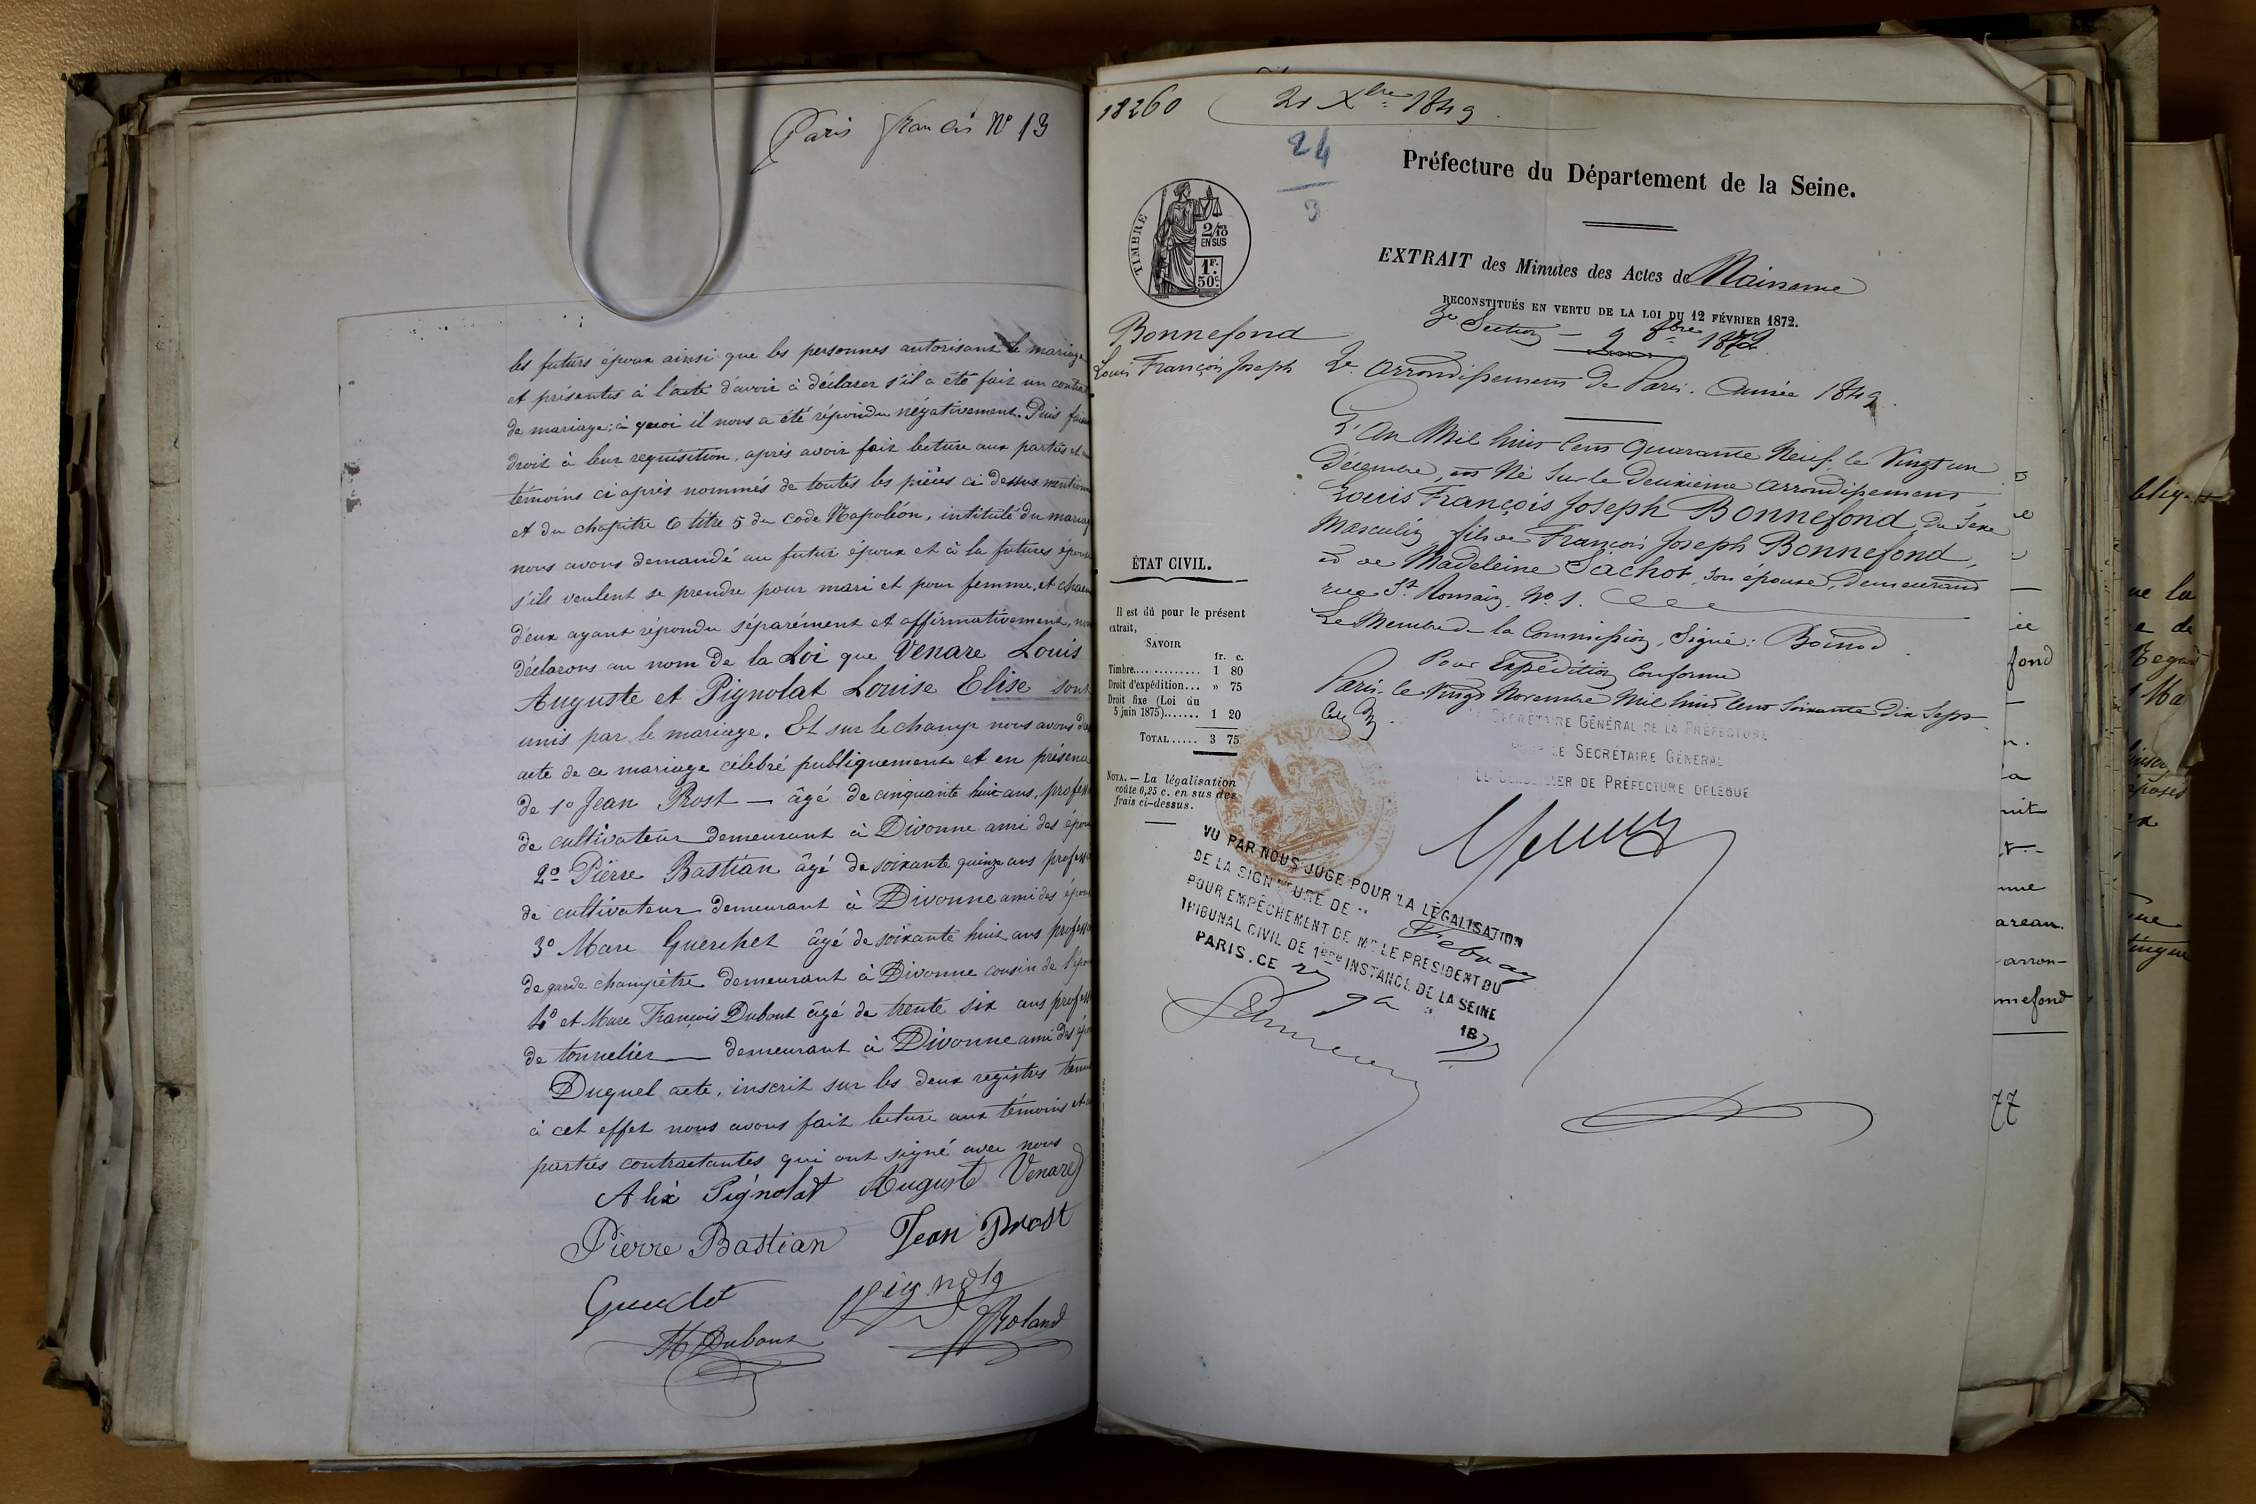 Paris francis Nº 13
les futurs époux ainsi que les personnes autorisant le mariage
et présentes à l'acte d'avoir à déclarer s'il a été fait un contrat
de mariage; à quoi il nous a été répondu négativement. Puis faisant
droit à leur requisition, après avoir fait lecture aux parties et
témoins ci après nommés de toutes les pièces ci dessus
et du chapitre 6 titre 5 du Code Napoléon, intitulé du mariage
nous avons demandé au futur époux et à la future épouse
s'ils veulent se prendre pour mari et pour femme, et chacun
d'eux ayant répondu séparément et affirmativement, nous
déclarons au nom de la Loi que Venare Louis
Auguste et Pignolat Louise Elise sont
unis par le mariage. Et sur le champ nous avons
acte de ce mariage célébré publiquement et en présence
de 1º Jean Prost — âgé de cinquante huit ans, profess
de cultivateur demeurant à Divonne ami des époux
2º Pierre Bastian âgé de soixante quinze ans profess
de cultivateur demeurant à Divonne ami des époux
3º Marc Guerchet âgé de soixante huit ans profess
de garde champêtre demeurant à Divonne cousin de l'épou
4º et Marc François Dubout âgé de trente six ans profess
de tonnelier — demeurant à Divonne ami des époux
Duquel acte, inscrit sur les deux registres tenus
à cet effet nous avons fait lecture aux témoins et
parties contractantes qui ont signé avec nous
Alix Pignolat Auguste Venare
Pierre Bastian Jean Prost
Pignola
M Dubout Roland
18260 21 Xbre 1849
24
3
Préfecture du Département de la Seine.
TIMBRE
2/10
EN SUS
1F.
50c.
EXTRAIT des Minutes des Actes de Naissance
RECONSTITUÉS EN VERTU DE LA LOI DU 12 FÉVRIER 1872.
3e Section — 9 8bre 1872
Bonnefond
Louis François Joseph
2e arrondissement de Paris. Année 1849.
L'An Mil huit cent quarante neuf, le Vingt un
Décembre, est Né sur le Deuxième arrondissement
Louis François Joseph Bonnefond, du sexe
Masculin, fils de François Joseph Bonnefond,
et de Madeleine Sachot, son épouse, demeurant
rue St. Romain, No. 1.
Le Membre de la Commission, Signé: Boinod.
Pour Expédition Conforme
Paris, le Vingt Novembre Mil huit cent Soixante dix sept
SECRÉTAIRE GÉNÉRAL DE LA PRÉFECTURE
LE SECRÉTAIRE GÉNÉRAL
LE CONSEILLER DE PRÉFECTURE DÉLÉGUÉ
ÉTAT CIVIL.
Il est dû pour le présent
extrait,
SAVOIR
fr. c.
Timbre............ 1 80
Droit d'expédition... » 75
Droit fixe (Loi du
5 juin 1875)....... 1 20
TOTAL..... 3 75
NOTA. — La légalisation
coûte 0,25 c. en sus des
frais ci-dessus.
VU PAR NOUS JUGE POUR LA LÉGALISATION
DE LA SIGNATURE DE M
POUR EMPÊCHEMENT DE Mr LE PRÉSIDENT DU
TRIBUNAL CIVIL DE 1ère INSTANCE DE LA SEINE
PARIS. CE 187
fond
nit
nue
areau.
arron-
nnefond
77